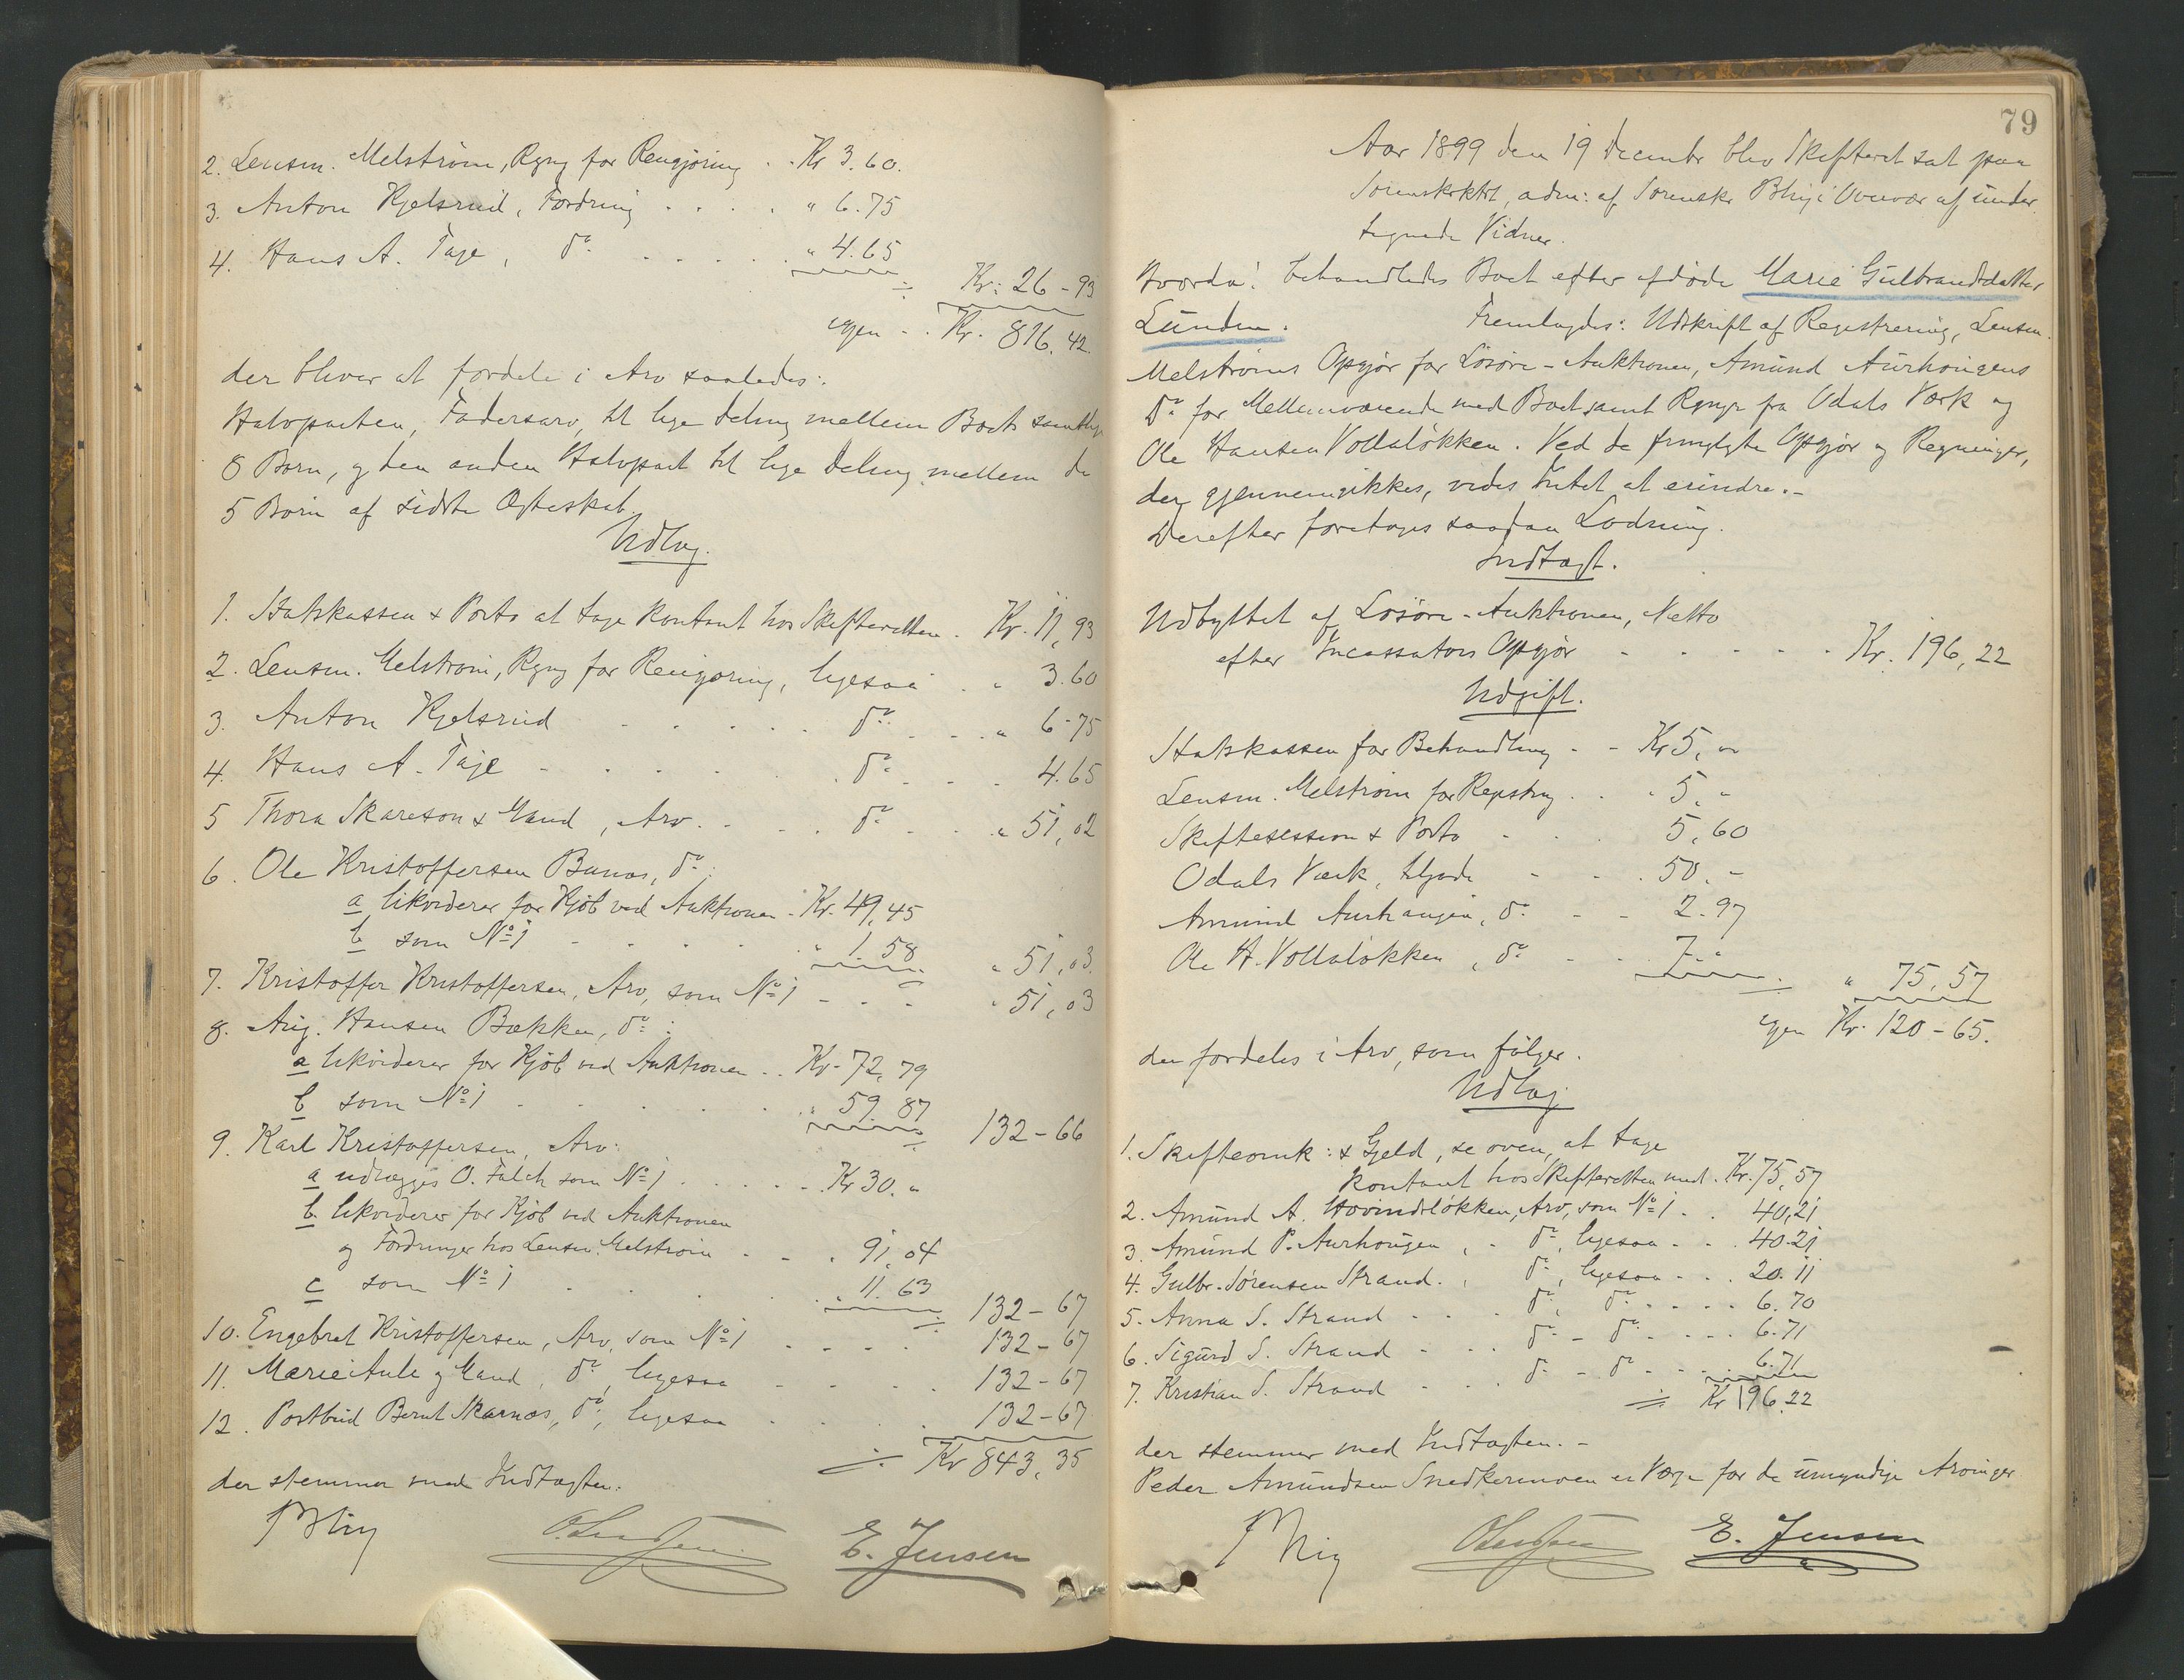 2. Lensm. Melström, Rgng for Rengjöring . . Kr 3.60.
3. Anton Kjelsrud, Fordring . . . . " 6.75
4. Hans A. Taje, do . . . . . " 4.65
÷ Kr: 26-93
igjen . . Kr. 816.42.
der bliver at fordele i Arv saaledes:
Halvparten, Fadersarv, til lige Deling mellem Boets samtlige
8 Børn, og den anden Halvpart til lige Deling mellem de
5 Børn af sidste Ægteskab.
Udlæg.
1. Statskassen & Porto at tage kontant hos Skifteretten. Kr. 11,93
2. Lensm. Melström, Rgng for Rengjøring, ligesaa . " 3.60
3. Anton Kjelsrud . . . . . do . . . " 6-75
4. Hans A. Taje - . . . . do . . . 4.65
5 Thora Skareson & Mand, Arv. - . . do . . . " 51,02
6. Ole Kristoffersen Bunæs, do:
a likviderer for Kjöb ved Auktionen . Kr. 49,45
b som No 1 . . . . . " 1.58
" 51,03
7. Kristoffer Kristoffersen, Arv, som No 1 - . - " 51,03
8. Aug. Hansen Bækken, do:
a likviderer for Kjöb ved Auktionen . . Kr. 72,79
b som No 1 . . . . . " 59.87
132-66
9. Karl Kristoffersen, Arv:
a udlægges O. Falch som No 1 . . . . . Kr 30. "
b. likviderer for Kjöb ved Auktionen
og Fordringer hos Lensm. Melström - - . 91,04
c som No 1 . . . . . " 11.63
132-67
10. Engebret Kristoffersen, Arv, som No 1 . . . . 132-67
11. Marie Aule og Mand, do, ligesaa - - . . 132-67
12. Postbud Bernt Skarnæs, do, ligesaa . . . . 132-67
÷ Kr 843,35
der stemmer med Indtægten.
Blig E. Jensen
79
Aar 1899 den 19 December blev Skifteret sat paa
Sorenskrktrt, adm: af Sorenskr Blig i Overvær af under
tegnede Vidner.
Hvorda: behandledes Boet efter afdøde Marie Gulbrandsdatter
Lunden. Fremlagdes: Udskrift af Registrering, Lensm.
Melströms Opgjör for Lösöre-Auktionen, Amund Aurhougens
Do for Mellemværende med Boet samt Rgngr fra Odals Værk og
Ole Hansen Vollalökken. Ved de fremlagte Opgjör og Regninger,
der gjennemgikkes, vides Intet at erindre.-
Derefter foretoges saadan Lodning.
Indtægt.
Udbyttet af Lösöre-Auktionen, Netto
efter Incassators Opgjör - . . . . Kr. 196,22
Udgift.
Statskassen for Behandling - - Kr 5. "
Lensm. Melström for Regstrng . . " 5. "
Skiftesession & Porto - . . 5,60
Odals Værk, tilgode - . . 50. -
Amund Aurhaugen, do - - 2.97
Ole H. Vollalökken, do - . 7. "
" 75,57
igjen Kr. 120-65.
der fordeles i Arv, som fölger.
Udlæg
1. Skifteomk: & Gjeld, se oven, at tage
kontant hos Skifteretten med . Kr. 75,57
2. Amund A. Hovindslökken, Arv, som No 1 . . 40,21
3. Amund P. Aurhougen, - do, ligesaa - . . 40.21
4. Gulbr. Sörensen Strand. , do, ligesaa - . . 20.11
5. Anna S. Strand - . . . do, do . . . . 6.70
6. Sigurd S. Strand - . . do - do . . . . 6.71
7. Kristian S. Strand - . . do - do . . . . 6.71
÷ Kr 196.22
der stemmer med Indtægten.-
Peder Amundsen Snedkermoen er Værge for de umyndige Arvinger
Blig E. Jensen